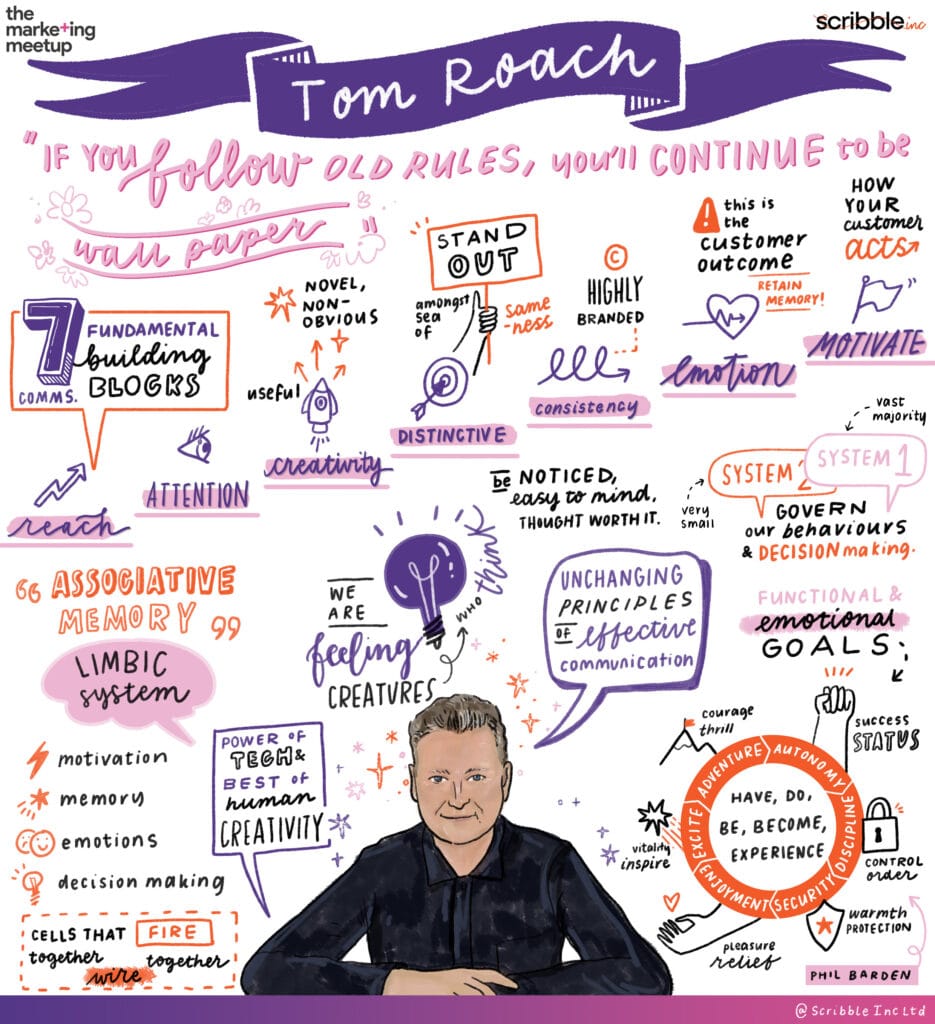 the
marke+ing
meetup
scribble.inc
Tom Roach
"IF YOU follow OLD RULES, you'll CONTINUE to be
wall paper"
7
COMMS.
FUNDAMENTAL
building
BLOCKS
reach
ATTENTION
NOVEL,
NON-
OBVIOUS
useful
creativity
STAND
OUT
amongst
sea
of
same
-ness
DISTINCTIVE
C
HIGHLY
BRANDED
consistency
! this is
the
customer
outcome
RETAIN
MEMORY!
emotion
HOW
YOUR
customer
acts
MOTIVATE
be NOTICED,
easy to mind,
THOUGHT WORTH IT.
vast
majority
SYSTEM 2
SYSTEM 1
very
small
GOVERN
our behaviours
& DECISION making.
"ASSOCIATIVE
MEMORY"
LIMBIC
system
motivation
memory
emotions
decision making
CELLS THAT FIRE
together together
wire
WE
ARE
feeling
CREATURES
WHO
think
UNCHANGING
PRINCIPLES
OF effective
communication
POWER OF
TECH &
BEST OF
human
CREATIVITY
FUNCTIONAL &
emotional
GOALS:
courage
thrill
success
STATUS
ADVENTURE
AUTONOMY
DISCIPLINE
SECURITY
ENJOYMENT
EXCITE
HAVE, DO,
BE, BECOME,
EXPERIENCE
vitality
inspire
CONTROL
order
warmth
PROTECTION
pleasure
relief
PHIL BARDEN
@Scribble Inc Ltd